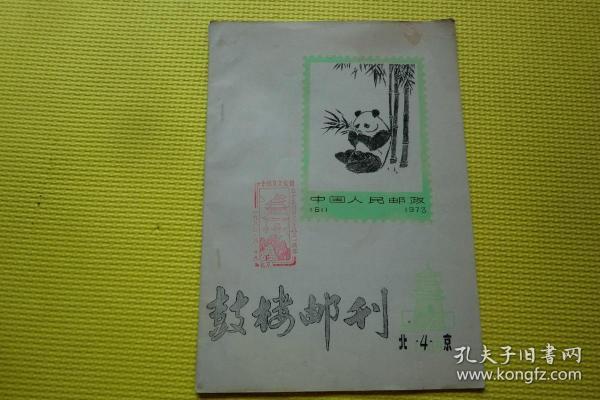 中国人民邮政
(61) 1973
鼓楼邮刊
北·4·京
孔夫子旧书网
www.kongfz.com